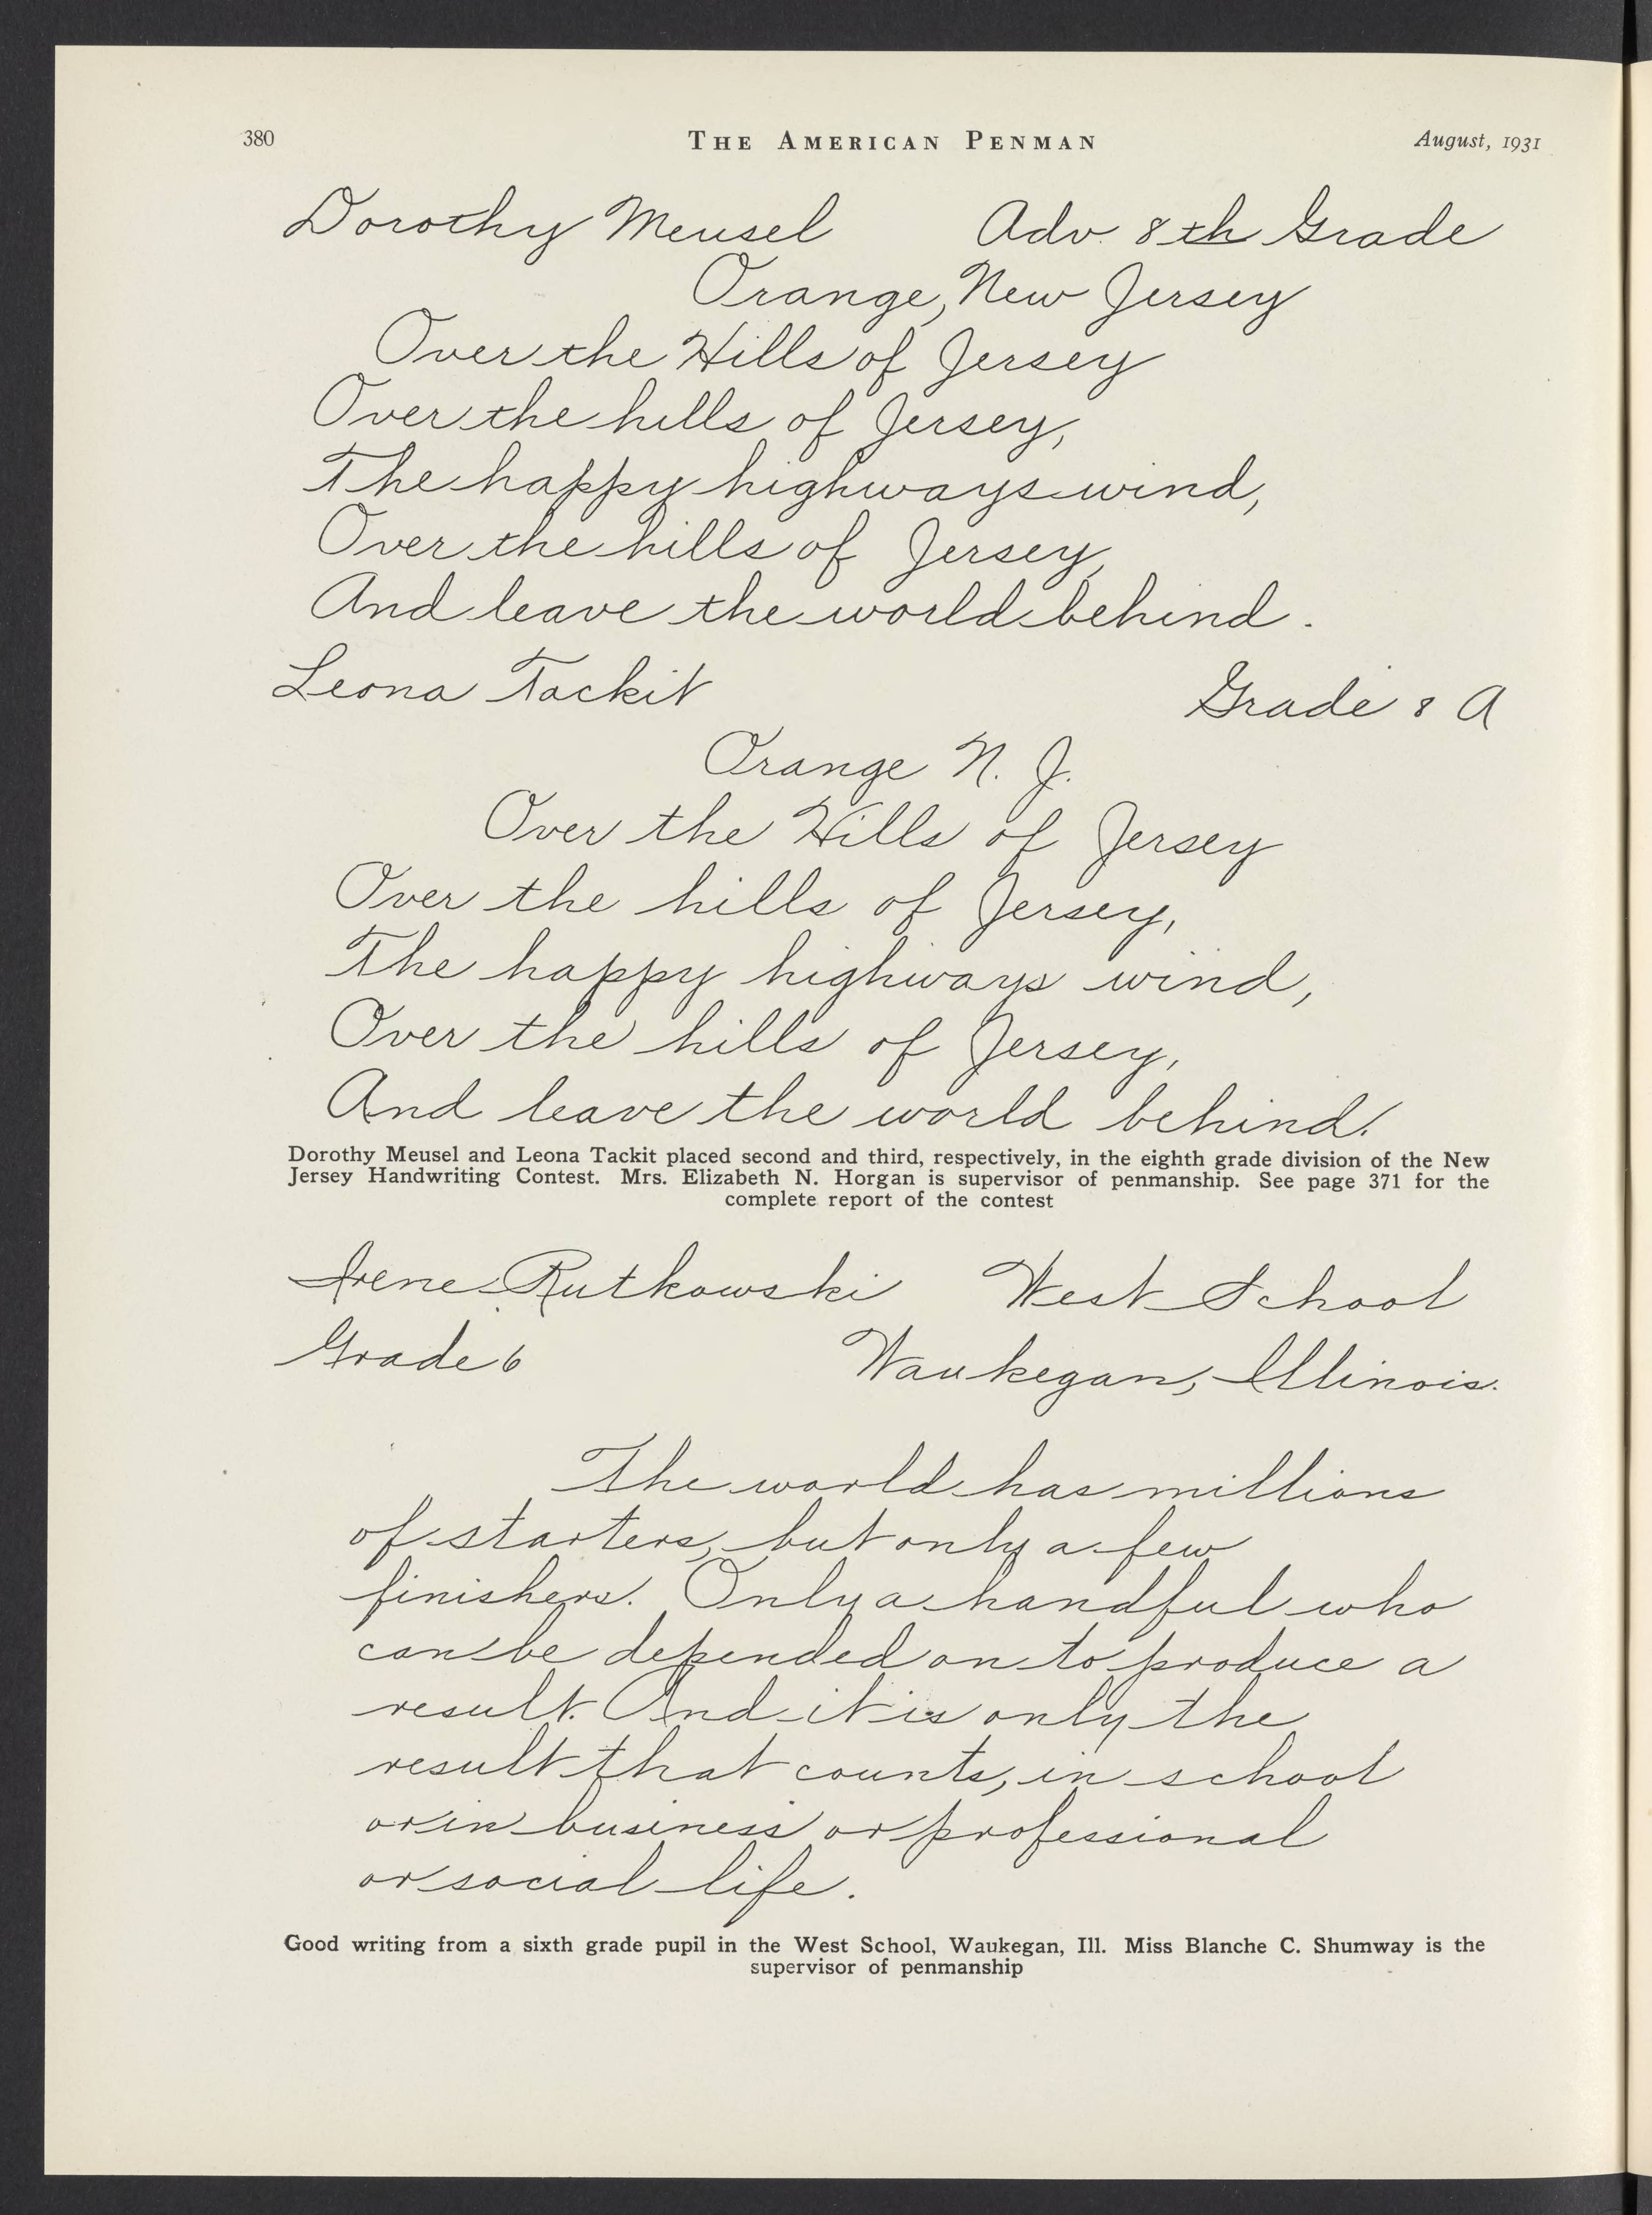 380 THE AMERICAN PENMAN August, 1931
Dorothy Meusel Adv. 8th Grade
Orange, New Jersey
Over the Hills of Jersey
Over the hills of Jersey,
The happy highways wind,
Over the hills of Jersey,
And leave the world behind.
Leona Tackit Grade 8 A
Orange N. J.
Over the Hills of Jersey
Over the hills of Jersey,
The happy highways wind,
Over the hills of Jersey,
And leave the world behind.
Dorothy Meusel and Leona Tackit placed second and third, respectively, in the eighth grade division of the New
Jersey Handwriting Contest. Mrs. Elizabeth N. Horgan is supervisor of penmanship. See page 371 for the
complete report of the contest
Irene Rutkowski West School
Grade 6 Waukegan, Illinois.
The world has millions
of starters, but only a few
finishers. Only a handful who
can be depended on to produce a
result. And it is only the
result that counts, in school
or in business or professional
or social life.
Good writing from a sixth grade pupil in the West School, Waukegan, Ill. Miss Blanche C. Shumway is the
supervisor of penmanship